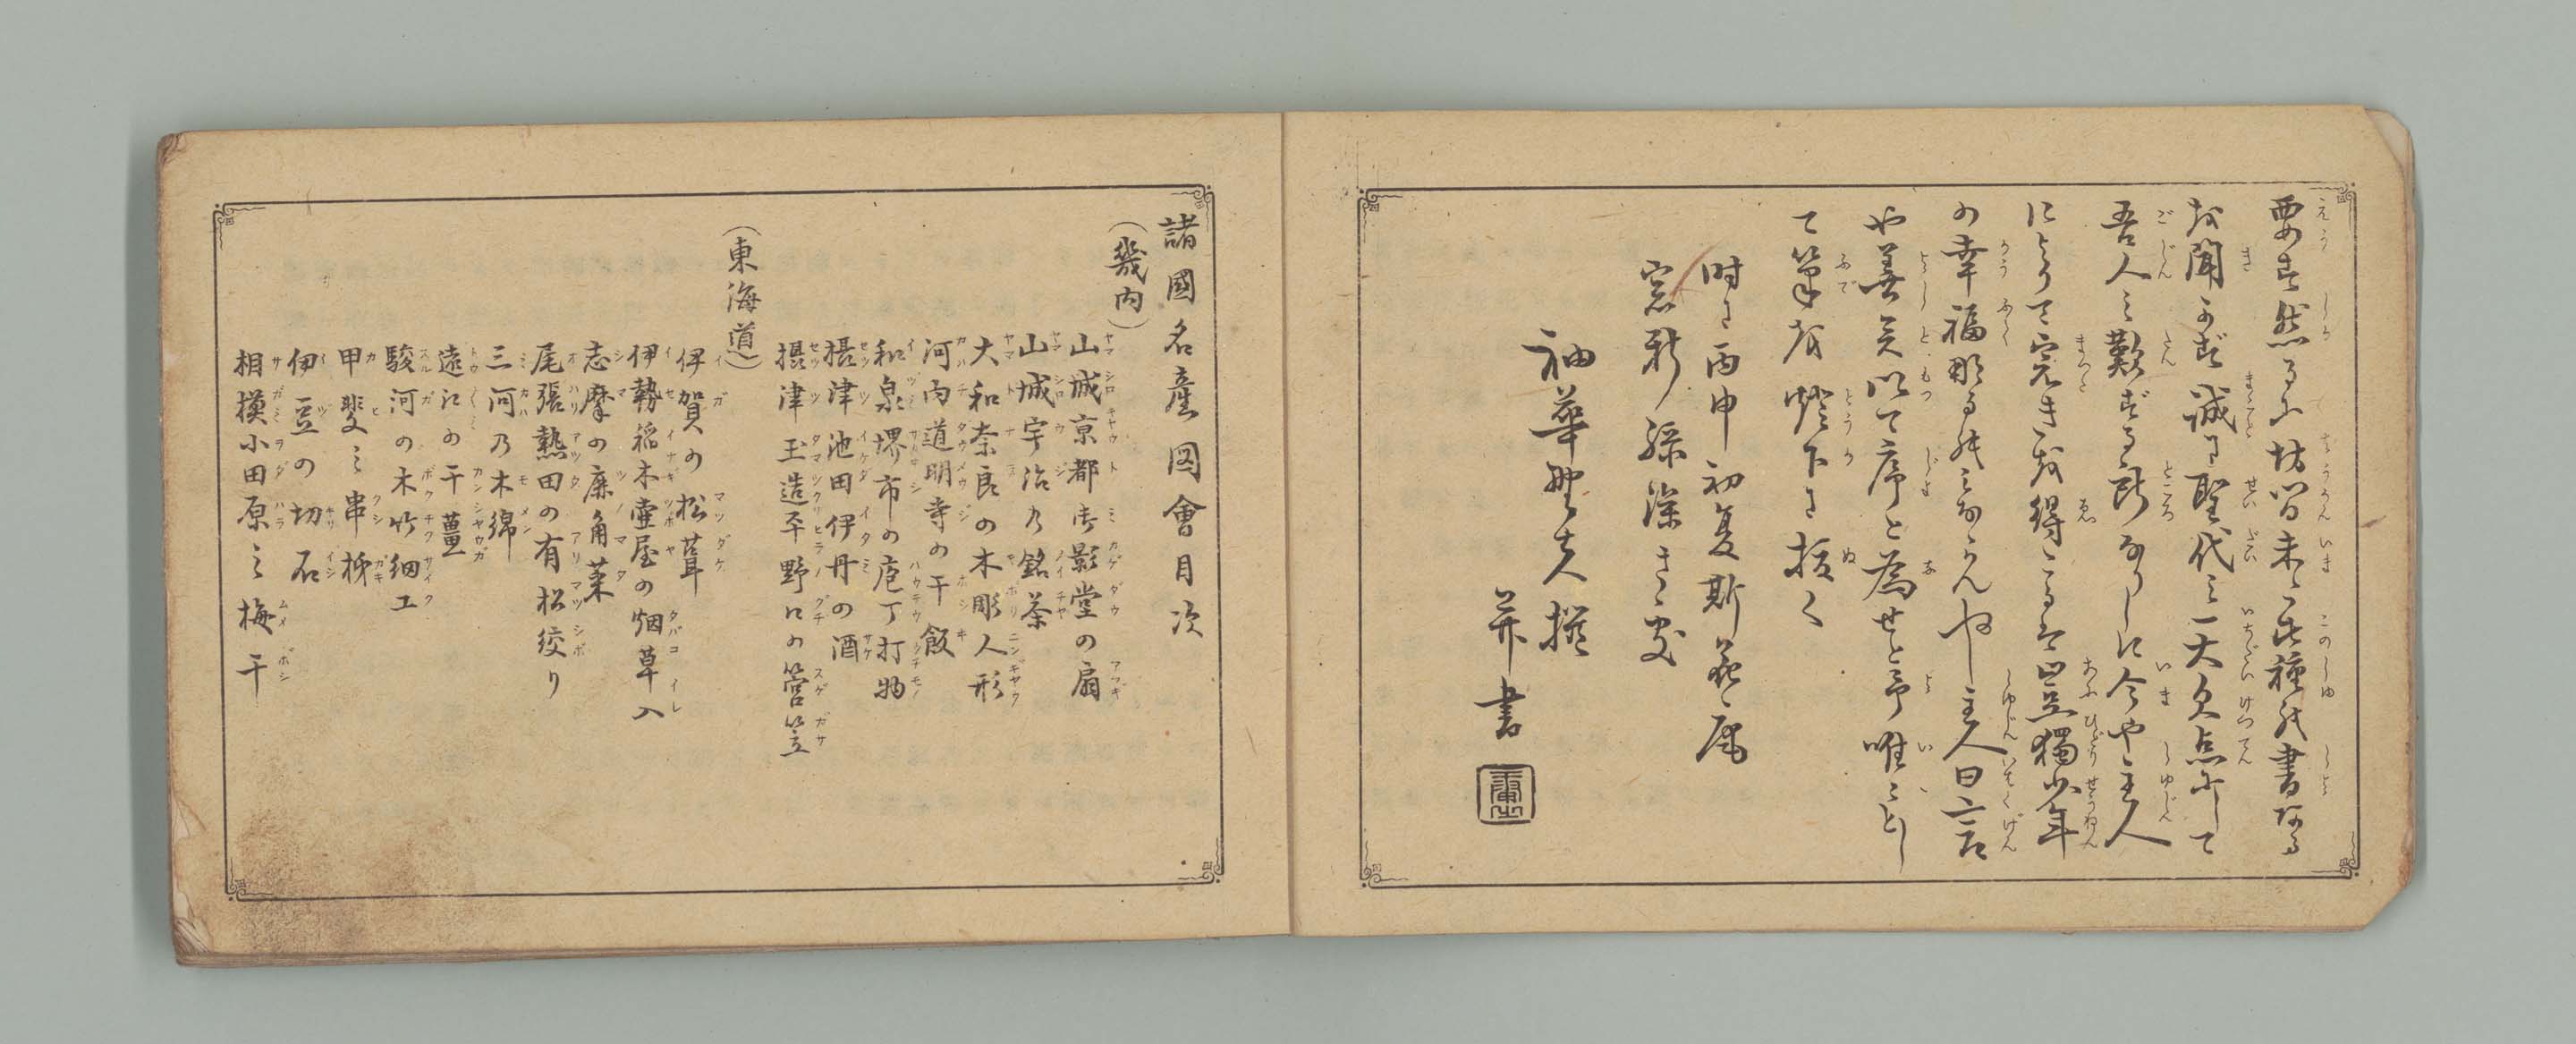 要す然るに坊間未だ此種の書ある
を聞かず誠に聖代之一大欠点にして
吾人之歎ずる所なりしに今や主人
によりて完きを得たるは豈独少年
の幸福のみならんや主人曰言
や善矣以て序と為せと予唯々とし
て筆を燈下に抜く
時に丙申初夏
窓
袖華野史撰
并書
諸國名産図會目次
(畿内)
山城京都御影堂の扇
山城宇治乃銘茶
大和奈良の木彫人形
河内道明寺の干飯
和泉堺市の庖丁打物
摂津池田伊丹の酒
摂津玉造平野口の菅笠
(東海道)
伊賀の松茸
伊勢稲木壷屋の烟草入
志摩の鹿角菜
尾張熱田の有松絞り
三河乃木綿
遠江の干薑
駿河の木竹細工
甲斐之串柹
伊豆の切石
相模小田原之梅干